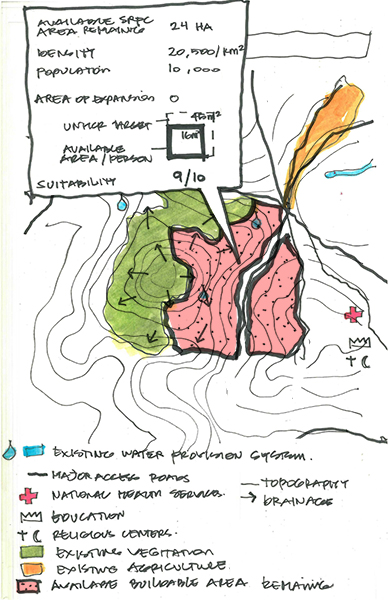 AVAILABLE SPEC 24 HA
AREA REMAINING
DENSITY 20,500/km²
POPULATION 10,000
AREA OF EXPANSION 0
UNHCR TARGET 45m²
AVAILABLE 16m²
AREA/PERSON
SUITABILITY 9/10
EXISTING WATER PROVISION SYSTEM.
MAJOR ACCESS ROADS
TOPOGRAPHY
NATIONAL HEALTH SERVICES.
DRAINAGE
EDUCATION
RELIGIOUS CENTERS.
EXISTING VEGITATION
EXISTING AGRICULTURE.
AVAILABLE BUILDABLE AREA REMAINING